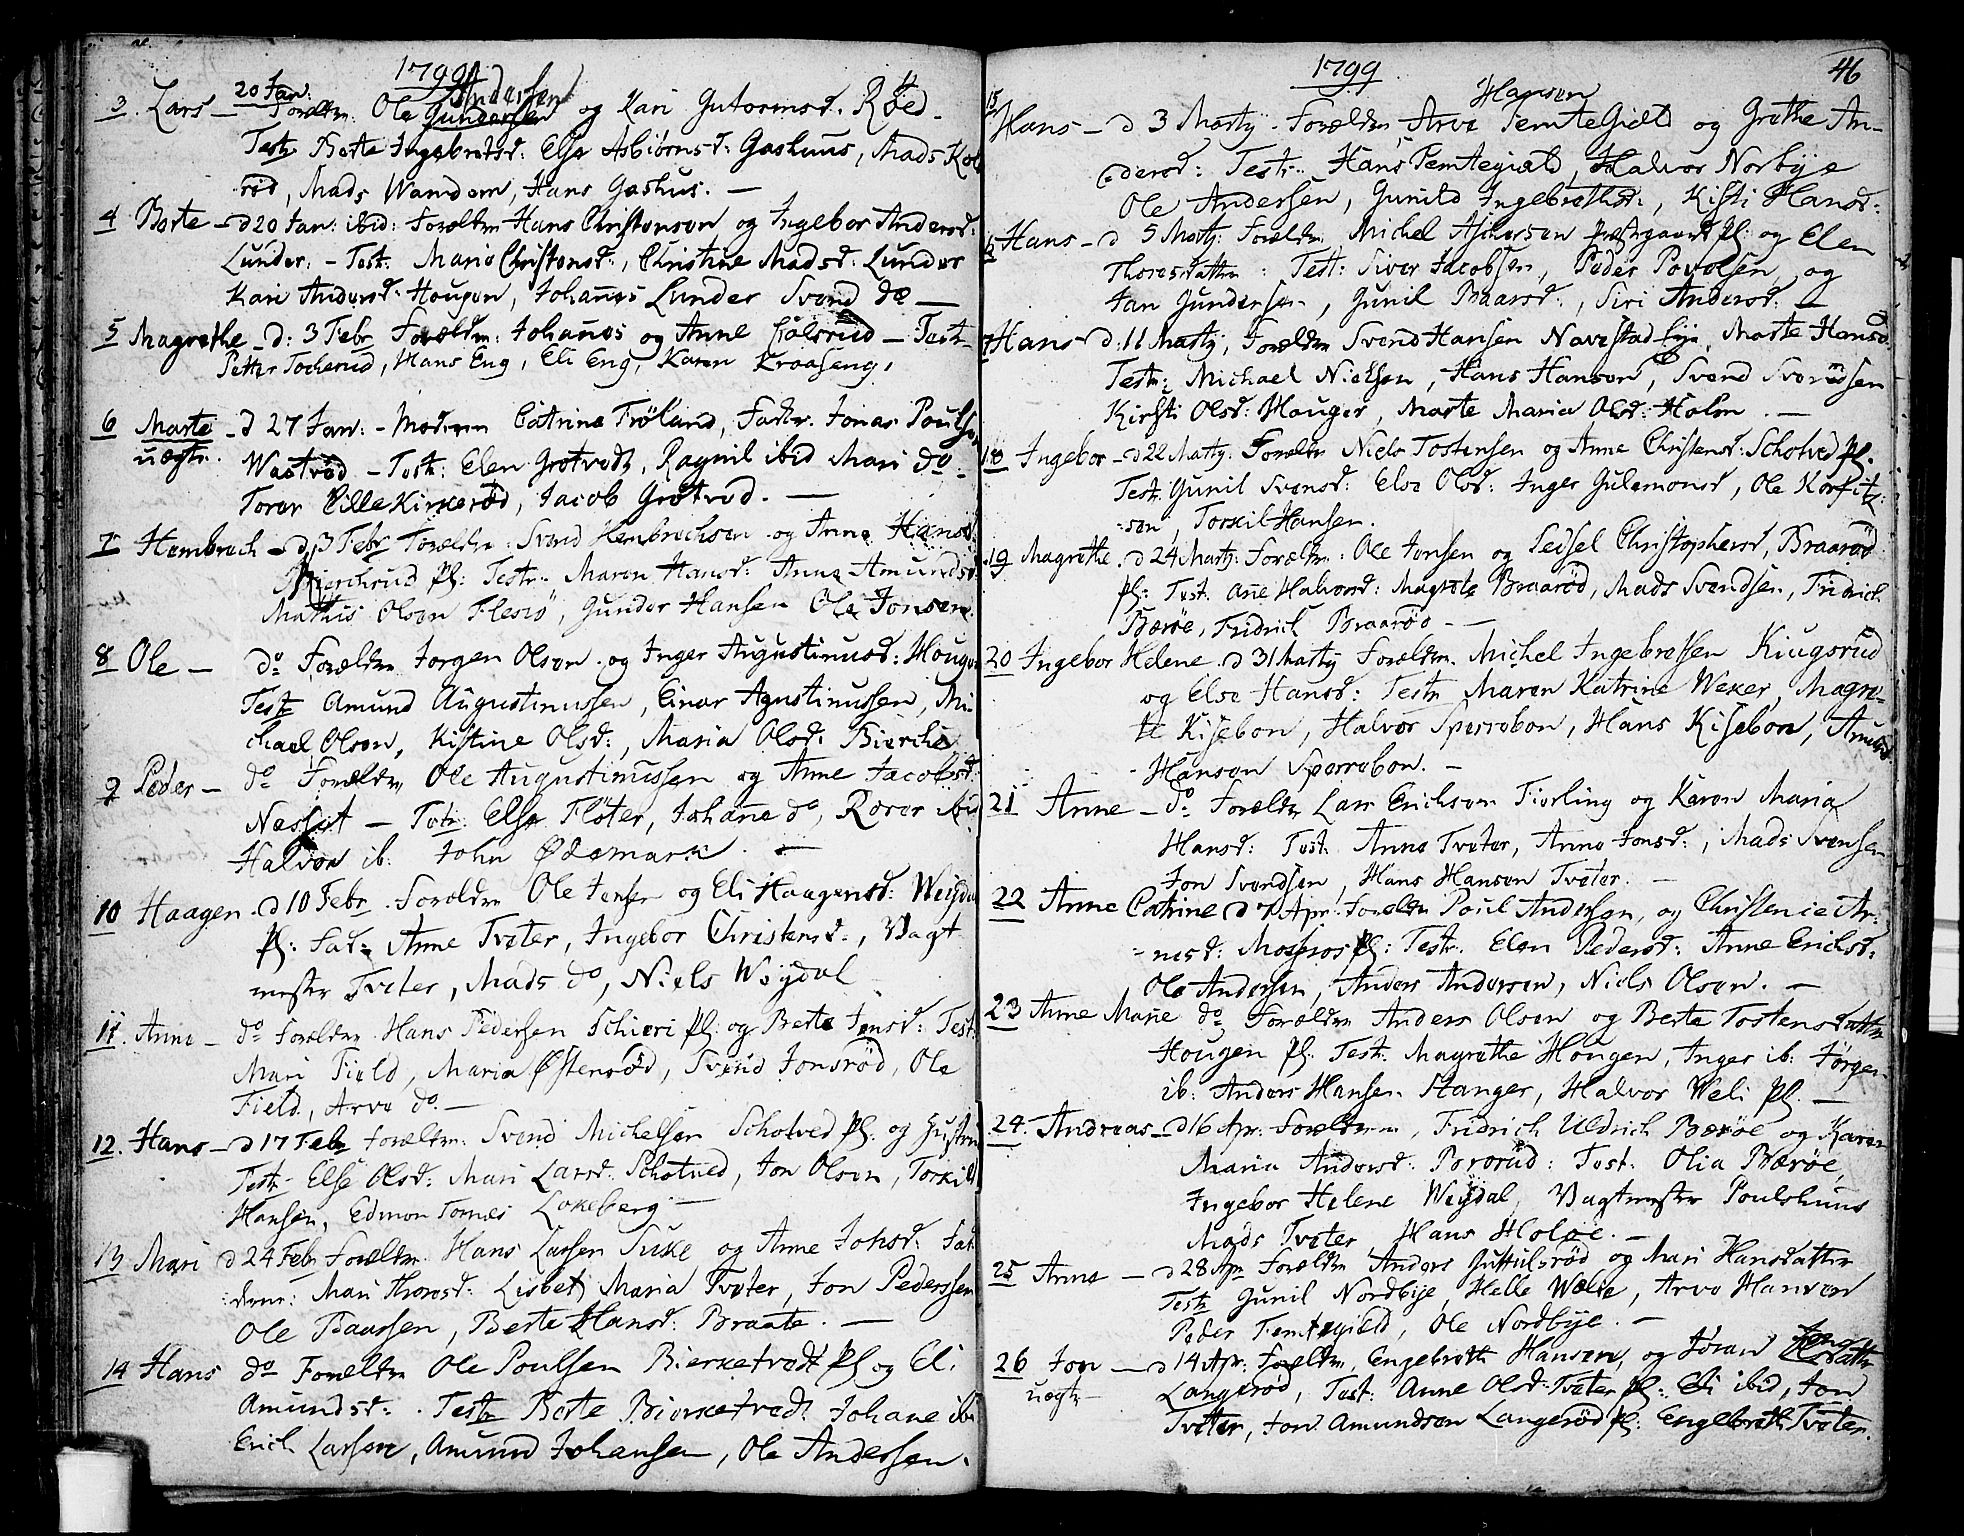 1799
3. Lars - 20 Jan: Forældr: Ole Gundersen Andersen og Kari Gutormsd. Røed.
Testr Berte Ingebretsd: Else Asbiørnsd: Gashuus, Mads Kol
rød, Mads Wamdem, Hans Gashus. -
4 Berte - d 20 Jan: ibid: Forældrn Hans Christensen og Ingebor Andersd:
Lunder. - Test: Marie Christensd:, Christine Madsd: Lunder
Kari Andersd: Hougen, Johanes Lunder Svend do -
5 Magrethe - d: 3 Febr Forældrn: Johanes og Anne Cholsrud - Test
Petter Tocherud, Hans Eng, Eli Eng, Karen Kraaseng,
6 Marte - d 27 Jan: - Modren Catrine Frøland, Fadr. Jonas Poulsen
uægtr. Wastvød - Test: Elen Grøtvedt, Ragnil ibid Mari do.
Torer Lille Kirkerød, Jacob Grøtved. -
7 Hembrech - d, 3 Febr Forældrn: Svend Hembrechsen og Anne Hansd
Bierchrud pl: Testr. Maren Hansd: Anne Amundsd
Mathis Olsen Flesiø, Gunder Hansen Ole Jonsen.
8 Ole - do Forældrn Jorgen Olsen og Inger Augustinusd: Hougen
Test Amund Augustinussen, Einar Agustinussen, Mi
chael Olsen, Kistine Olsd:, Maria Olsd: Bierche
9 Peder - do Forældrn Ole Augustinussen og Anne Jacobsd:
Nesset - Test: Else Fløter, Johane do, Rører ibid
Halvor ib: John Ødemark. -
10 Haagen. d 10 Febr. Forældrn Ole Jensen og Eli Haagensd: Weydal
pl: Fad: Anne Tveter, Ingebor Christensd:, Vagt
mester Tveter, Mads do, Niels Weydal
11. Anne - do Forældrn Hans Pedersen Schieri pl: og Berte Jensd: Test
Mari Field, Maria Østensrød, Sverid Jonsrød, Ole
Field, Arve do. -
12. Hans - d 17 Febr Forældrn: Svend Michelsen Schotved pl: og
Testr Else Olsd: Mari Larsd. Schotved, Jon Olsen, Torkil
Hansen, Edmon Tomes Lokeberg -
13 Mari d 24 Febr Forældrn. Hans Larsen Suke og Anne Johsd: Fad
drene: Mari Thoresd: Lisbet, Maria Tveter, Jon Pederssen
Ole Baarsen, Berte Hansd: Braate. -
14 Hans do Forældrn Ole Poulsen Bierketvedt pl og Eli
Amundsd: Testr Berte Bierketvedt Johane ib:
Erich Larsen, Amund Johansen, Ole Andersen.
1799 46
15 Hans - d 3 Martij. Forældrn Arve Hansen Temtegield og Grethe An-
dersd: Testr: Hans Temtegield, Halvor Norbye
Ole Andersen, Gunild Ingebrethsd:, Kisti Hansd:
16 Hans - d 5 Martij: Forældrn Michel Aschersen Præstegaard pl: og Elen
Thoresdatter: Test: Siver Jacobsen, Peder Povelsen, og
Jan Gundersen, Gunil Baarsd:, Siri Andersd: -
17 Hans - d: 11 Martij, Forældrn Svend Hansen Navestad eye, Marte Hansd
Testr: Michael Nielsen, Hans Hansen, Svend Svendsen
Kirsti Olsd: Houger, Marte Maria Olsd: Holm. -
18 Ingebor - d 22 Martij: Forældrn Niels Tostensen og Anne Christensd: Schotved pl.
Test: Gunil Svensd: Else Olsd: Inger Gulemonsd, Ole Korfitz
sen, Torkil Hansen.
19 Magrethe. d 24 Martij: Forældrn: Ole Jonsen og Sedsel Christophersd, Braarød
pl: Test. Ane Halvorsd: Magrete Braarød, Mads Svendsen, Fridrich
Bærøe, Fridrich Braarød - -
20 Ingebor Helene. d 31 Martij Forældrn. Michel Ingebretsen Kiugsrud
og Else Hansd: Testr Maren Katrine Weker, Magre-
te Kisebon, Halvor Sperrebon, Hans Kisebon, Amund
Hansen Sperrebon. -
21 Anne - do Forældrn Lars Erichsen Fierling og Karen Maria
Hansd: Test: Anne Tveter, Anne Jonsd:, Mads Svensen
Jon Svendsen, Hans Hansen Tveter. -
22 Anne Catrine d 7 Apr: Forældrn Poul Andersen, og Christencie Ar-
nesd: Mosseros pl: Testr. Elen Pedersd: Anne Erichsd:
Ole Andersen, Anders Andersen, Niels Olsen. -
23 Anne Marie do Forældrn Anders Olsen og Berte Tostensdatter
Hougen pl: Testr. Magrethe Hougen, Inger ib: Jørgen
ib: Anders Hansen Stanger, Halvor Weli pl. -
24. Andreas - d 16 Apr: Forældrene, Fridrich Uldrich Bærøe og Karen
Maria Andersd: Pererud: Test. Olia Bærøe,
Ingebor Helene Weydal, Vagtmester Poulshuus
Mads Tveter Hans Holøe. -
25 Anne - d 28 Apr Forældrn Anders Guttulsrød og Mari Hansdatter
Testr Gunil Nordbye, Helle Wælie, Arve Hansen
Peder Temtegield, Ole Nordbye. -
26 Jon - d 14 Apr: Forældrn, Engebreth Hansen, og Jøran Jensdatter
uægtr - Langerød, Test: Anne Olsd: Tveter pl: Eli ibid, Jon
Tveter, Jon Amundsen Langerød pl: Engebreth Tveter.